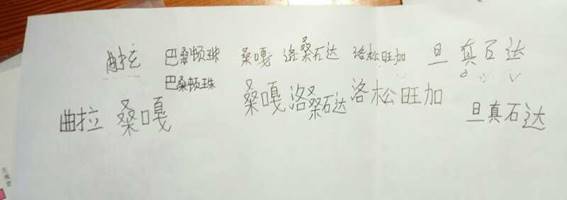 曲拉 巴桑顿珠 桑嘎 洛桑石达 洛松旺加 旦真石达
巴桑顿珠
曲拉 桑嘎 桑嘎洛桑石达 洛松旺加 旦真石达